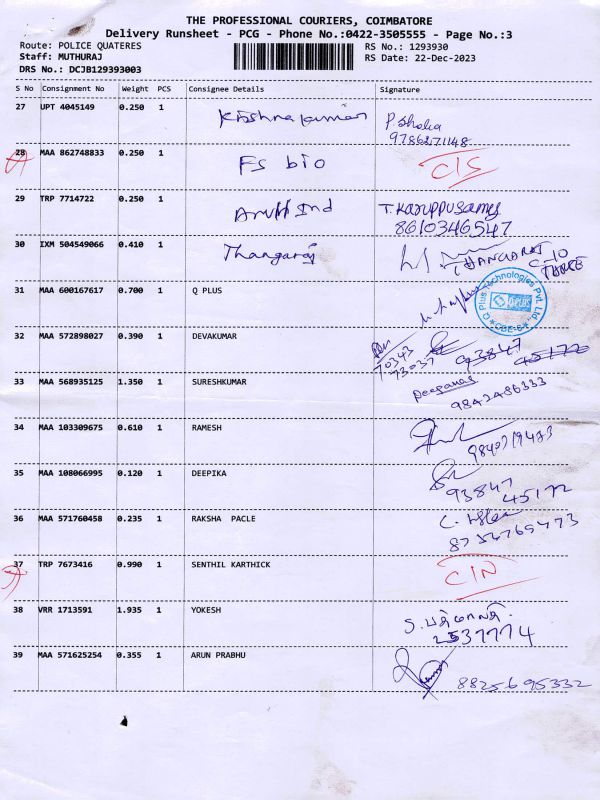 THE PROFESSIONAL COURIERS, COIMBATORE
Delivery Runsheet - PCG - Phone No.:0422-3505555 - Page No.:3
Route: POLICE QUATERES
Staff: MUTHURAJ
DRS No.: DCJB129393003
RS No.: 1293930
RS Date: 22-Dec-2023
S No Consignment No Weight PCS Consignee Details Signature
27 UPT 4045149 0.250 1 Krishna kumar
9786271148
28 MAA 862748833 0.250 1 FS bio C/S
29 TRP 7714722 0.250 1 Ind T. Karuppusamy
8610346547
30 IXM 504549066 0.410 1 Thangaraj THANGARAJ C-10
31 MAA 600167617 0.700 1 Q PLUS
Q Plus Technologies Pvt. Ltd
Q-PLUS
CBE-6
32 MAA 572898027 0.390 1 DEVAKUMAR 70343
73037 93847 45172
33 MAA 568935125 1.350 1 SURESHKUMAR
9842486333
34 MAA 103309675 0.610 1 RAMESH
35 MAA 108066995 0.120 1 DEEPIKA 93847
45172
36 MAA 571760458 0.235 1 RAKSHA PACLE
8754765773
37 TRP 7673416 0.990 1 SENTHIL KARTHICK C/N
38 VRR 1713591 1.935 1 YOKESH
2537774
39 MAA 571625254 0.355 1 ARUN PRABHU
88256 95332